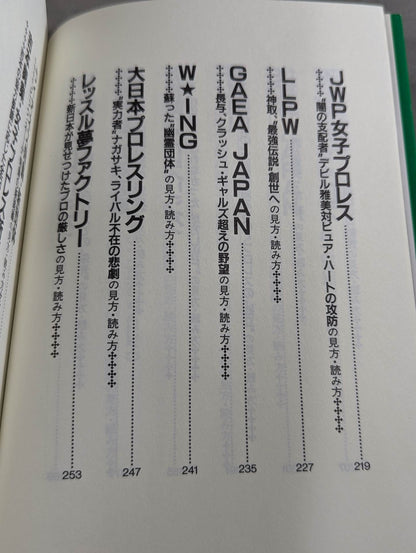 JWP女子プロレス
✣✣✣✣“闇の支配者”デビル雅美対ピュア・ハートの攻防の見方・読み方✣✣✣✣
219
LLPW
✣✣✣✣神取、“最強伝説”創世への見方・読み方✣✣✣✣
227
GAEA JAPAN
✣✣✣✣長与、クラッシュ・ギャルズ超えの野望の見方・読み方✣✣✣✣
235
W★ING
✣✣✣✣蘇った“幽霊団体”の見方・読み方✣✣✣✣
241
大日本プロレスリング
✣✣✣✣“実力者”ナガサキ、ライバル不在の悲劇の見方・読み方✣✣✣✣
247
レッスル夢ファクトリー
✣✣✣✣新日本が見せつけたプロの厳しさの見方・読み方✣✣✣✣
253